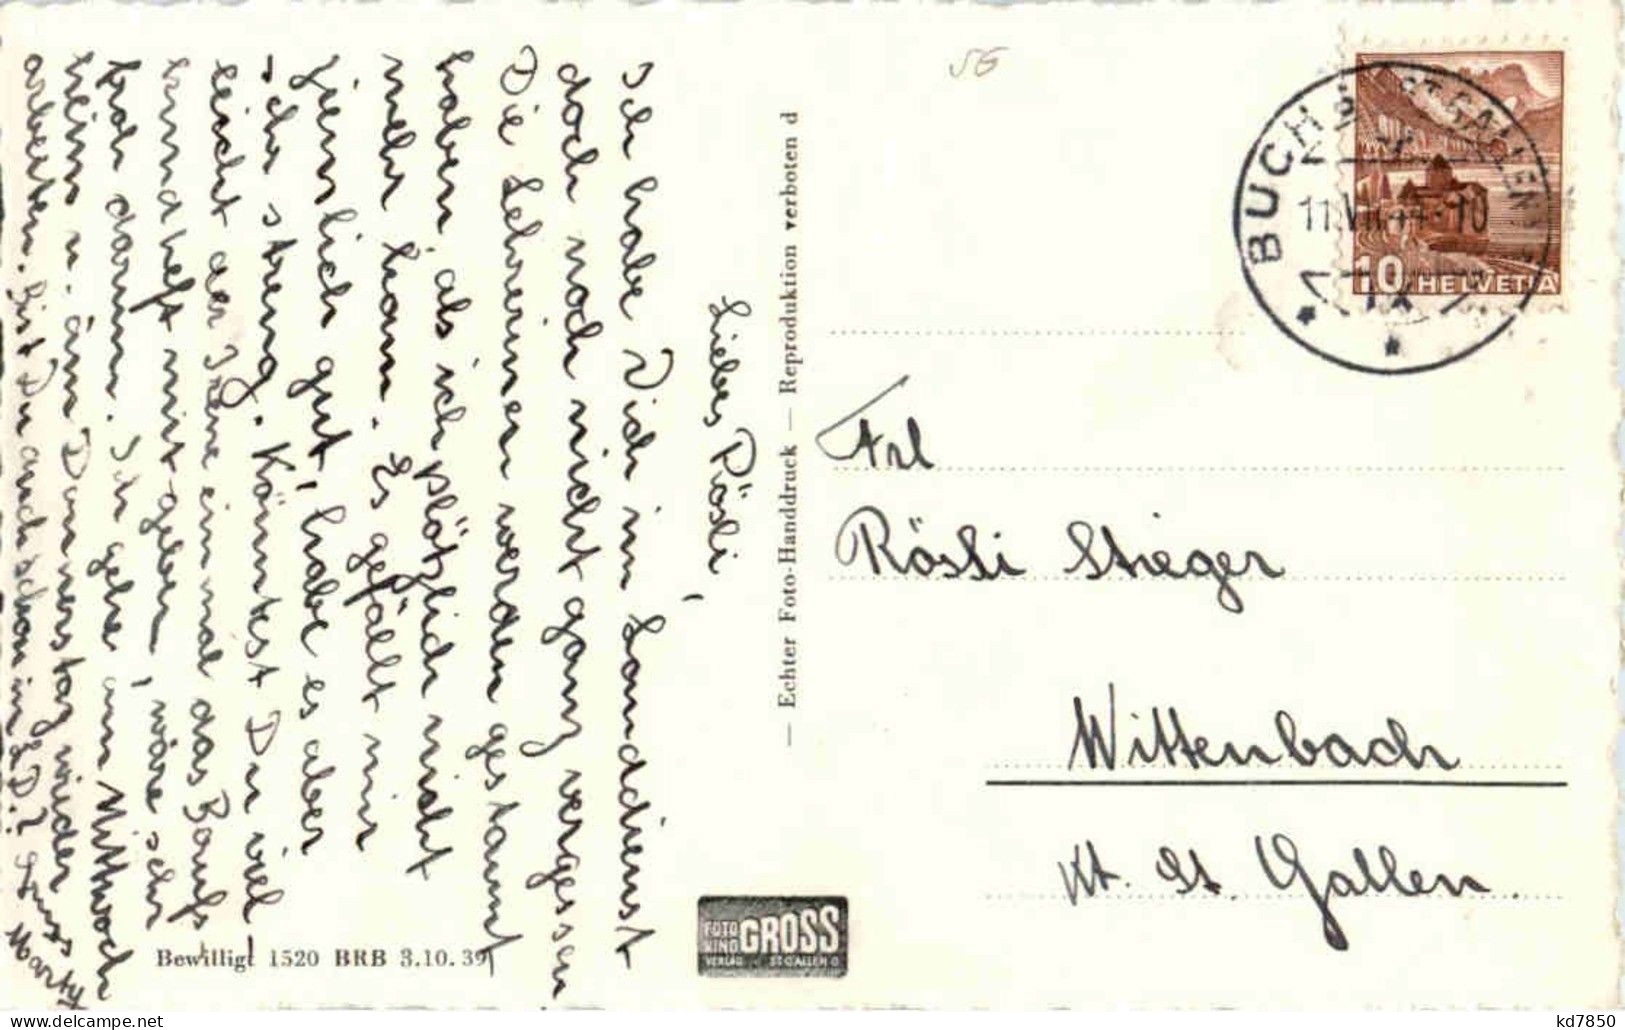 Liebes Rösli,
Ich habe Dich im Landdienst
doch noch nicht ganz vergessen
Die Lehrerinen werden gestaunt
haben, als ich plötzlich nicht
mehr kam. Es gefällt mir
ziemlich gut, habe es aber
sehr streng. Köntest Du viel
leicht der Irene einmal das Berufs
kundheft mitgeben, wäre sehr
froh darum. Ich gehe am Mittwoch
heim u. am Donnerstag wieder
arbeiten. Bist Du auch schon im L.D.? Gruss
Marty
Bewilligt 1520 BRB 3.10.39
— Echter Foto-Handdruck — Reproduktion verboten d
FOTO
KINO
GROSS
VERLAG ST. GALLEN O
56
BUCHS (ST. GALLEN)
11.VII.44-10
10 HELVETIA
Frl
Rösli Stieger
Wittenbach
Kt. St. Gallen.
kd7850